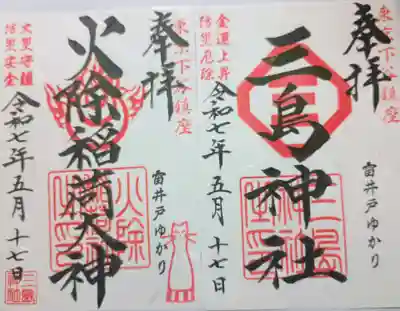 東京下谷鎮座
奉拝
三島神社
雷井戸ゆかり
金運上昇
防災厄除
令和七年五月十七日
東京下谷鎮座
奉拝
火除稲荷大神
雷井戸ゆかり
火災守護
防災安全
令和七年五月十七日
火除
三島
神社